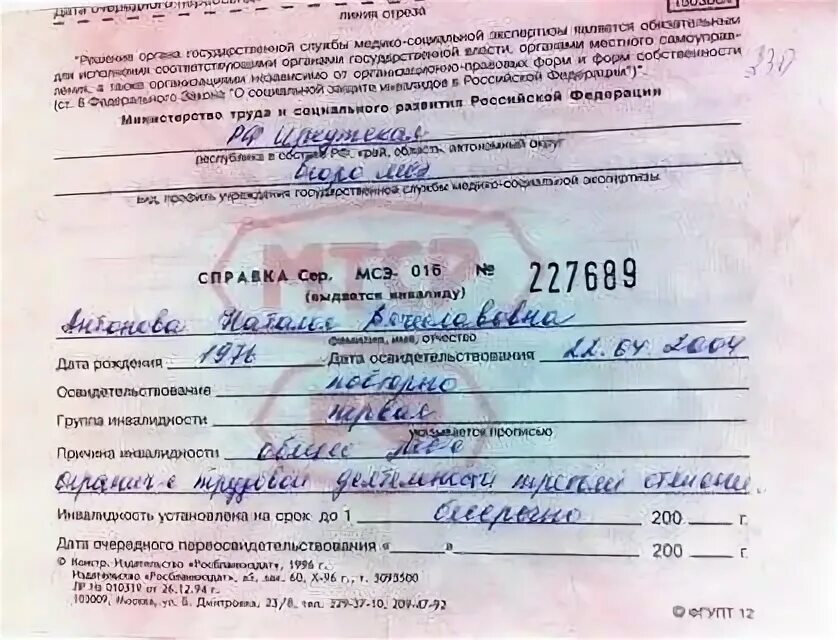 линия отреза
"Решения органа государственной службы медико-социальной экспертизы являются обязательным
для исполнения соответствующими органами государственной власти, органами местного самоуправ-
ления, а также организациями независимо от организационно-правовых форм и форм собственности
(ст. 8 Федерального Закона "О социальной защите инвалидов в Российской Федерации")".
Министерство труда и социального развития Российской Федерации
РФ Иркутская
республика в составе РФ, край, область, автономный округ
бюро МСЭ
вид, профиль учреждения государственной службы медико-социальной экспертизы
МТСР
СПРАВКА Сер. МСЭ- 016 № 227689
(выдается инвалиду)
Антонова Наталья Вячеславовна
фамилия, имя, отчество
Дата рождения 1976 Дата освидетельствования 22.04.2004
Освидетельствование повторно
Группа инвалидности первая
указывается прописью
Причина инвалидности общее
огранич-е трудовой деятельности третьей степени.
Инвалидность установлена на срок до 1 бессрочно 200 г.
Дата очередного переосвидетельствования « » 200 г.
© Констр. Издательство «Росбланкоиздат», 1996 г.
Издательство «Росбланкоиздат», зак. 60, X-96 г., т. 3093500
ЛР № 010310 от 26.12.94 г.
103009, Москва, ул. Б. Дмитровка, 23/8, тел. 229-37-10, 209-47-92
© ФГУПТ 12